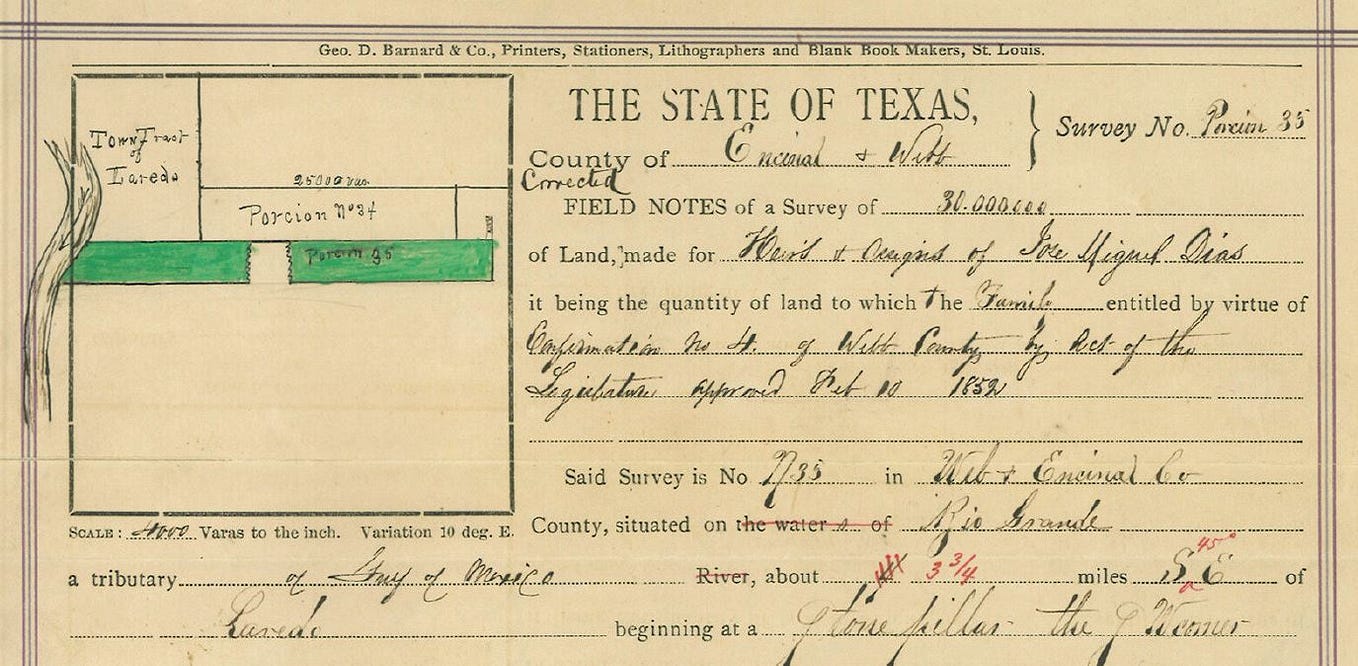 Geo. D. Barnard & Co., Printers, Stationers, Lithographers and Blank Book Makers, St. Louis.
Town Tract
of
Laredo
25000 vas
Porcion No 34
Porcion 35
SCALE: 4000 Varas to the inch. Variation 10 deg. E.
THE STATE OF TEXAS,
Survey No. Porcion 35
County of Encinal & Webb
Corrected
FIELD NOTES of a Survey of 30.000.000
of Land, made for Heirs & Assigns of Jose Miguel Dias
it being the quantity of land to which the Family entitled by virtue of
Confirmation No 4. of Webb County by Act of the
Legislature approved Feb 10 1852
Said Survey is No P35 in Web & Encinal Co
County, situated on the water s of Rio Grande
a tributary of Guf of Mexico River, about 3 3/4 miles S 45° E of
Laredo beginning at a Stone pillar the